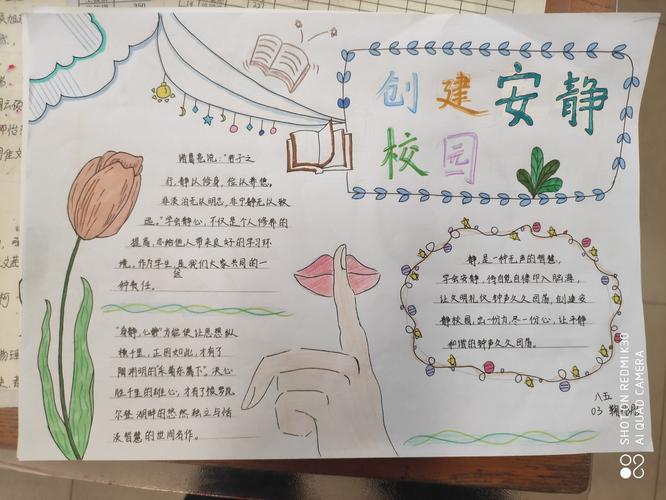 创建安静
校园
诸葛亮说："君子之
行,静以修身,俭以养德。
非淡泊无以明志,非宁静无以致
远。"学会静心,不仅是个人修养的
提高,亦给他人带来良好的学习环
境。作为学生,这是我们大家共同的一
种责任。
"身静,心静"方能使让思想纵
横千里,正因如此,才有了
陶渊明的"采菊东篱下"。决心
胜千里的雄心,才有了梭罗瓦
尔登湖畔的悠然独立与恬
淡智慧的世间名作。
静,是一种无声的智慧,
学会安静,待自觉自律印入脑海,
让文明礼仪钟声久久回荡,创建安
静校园,出一份力,尽一份心,让平静
和谐的钟声久久回荡。
八五
03
SHOT ON REDMI K30
AI QUAD CAMERA